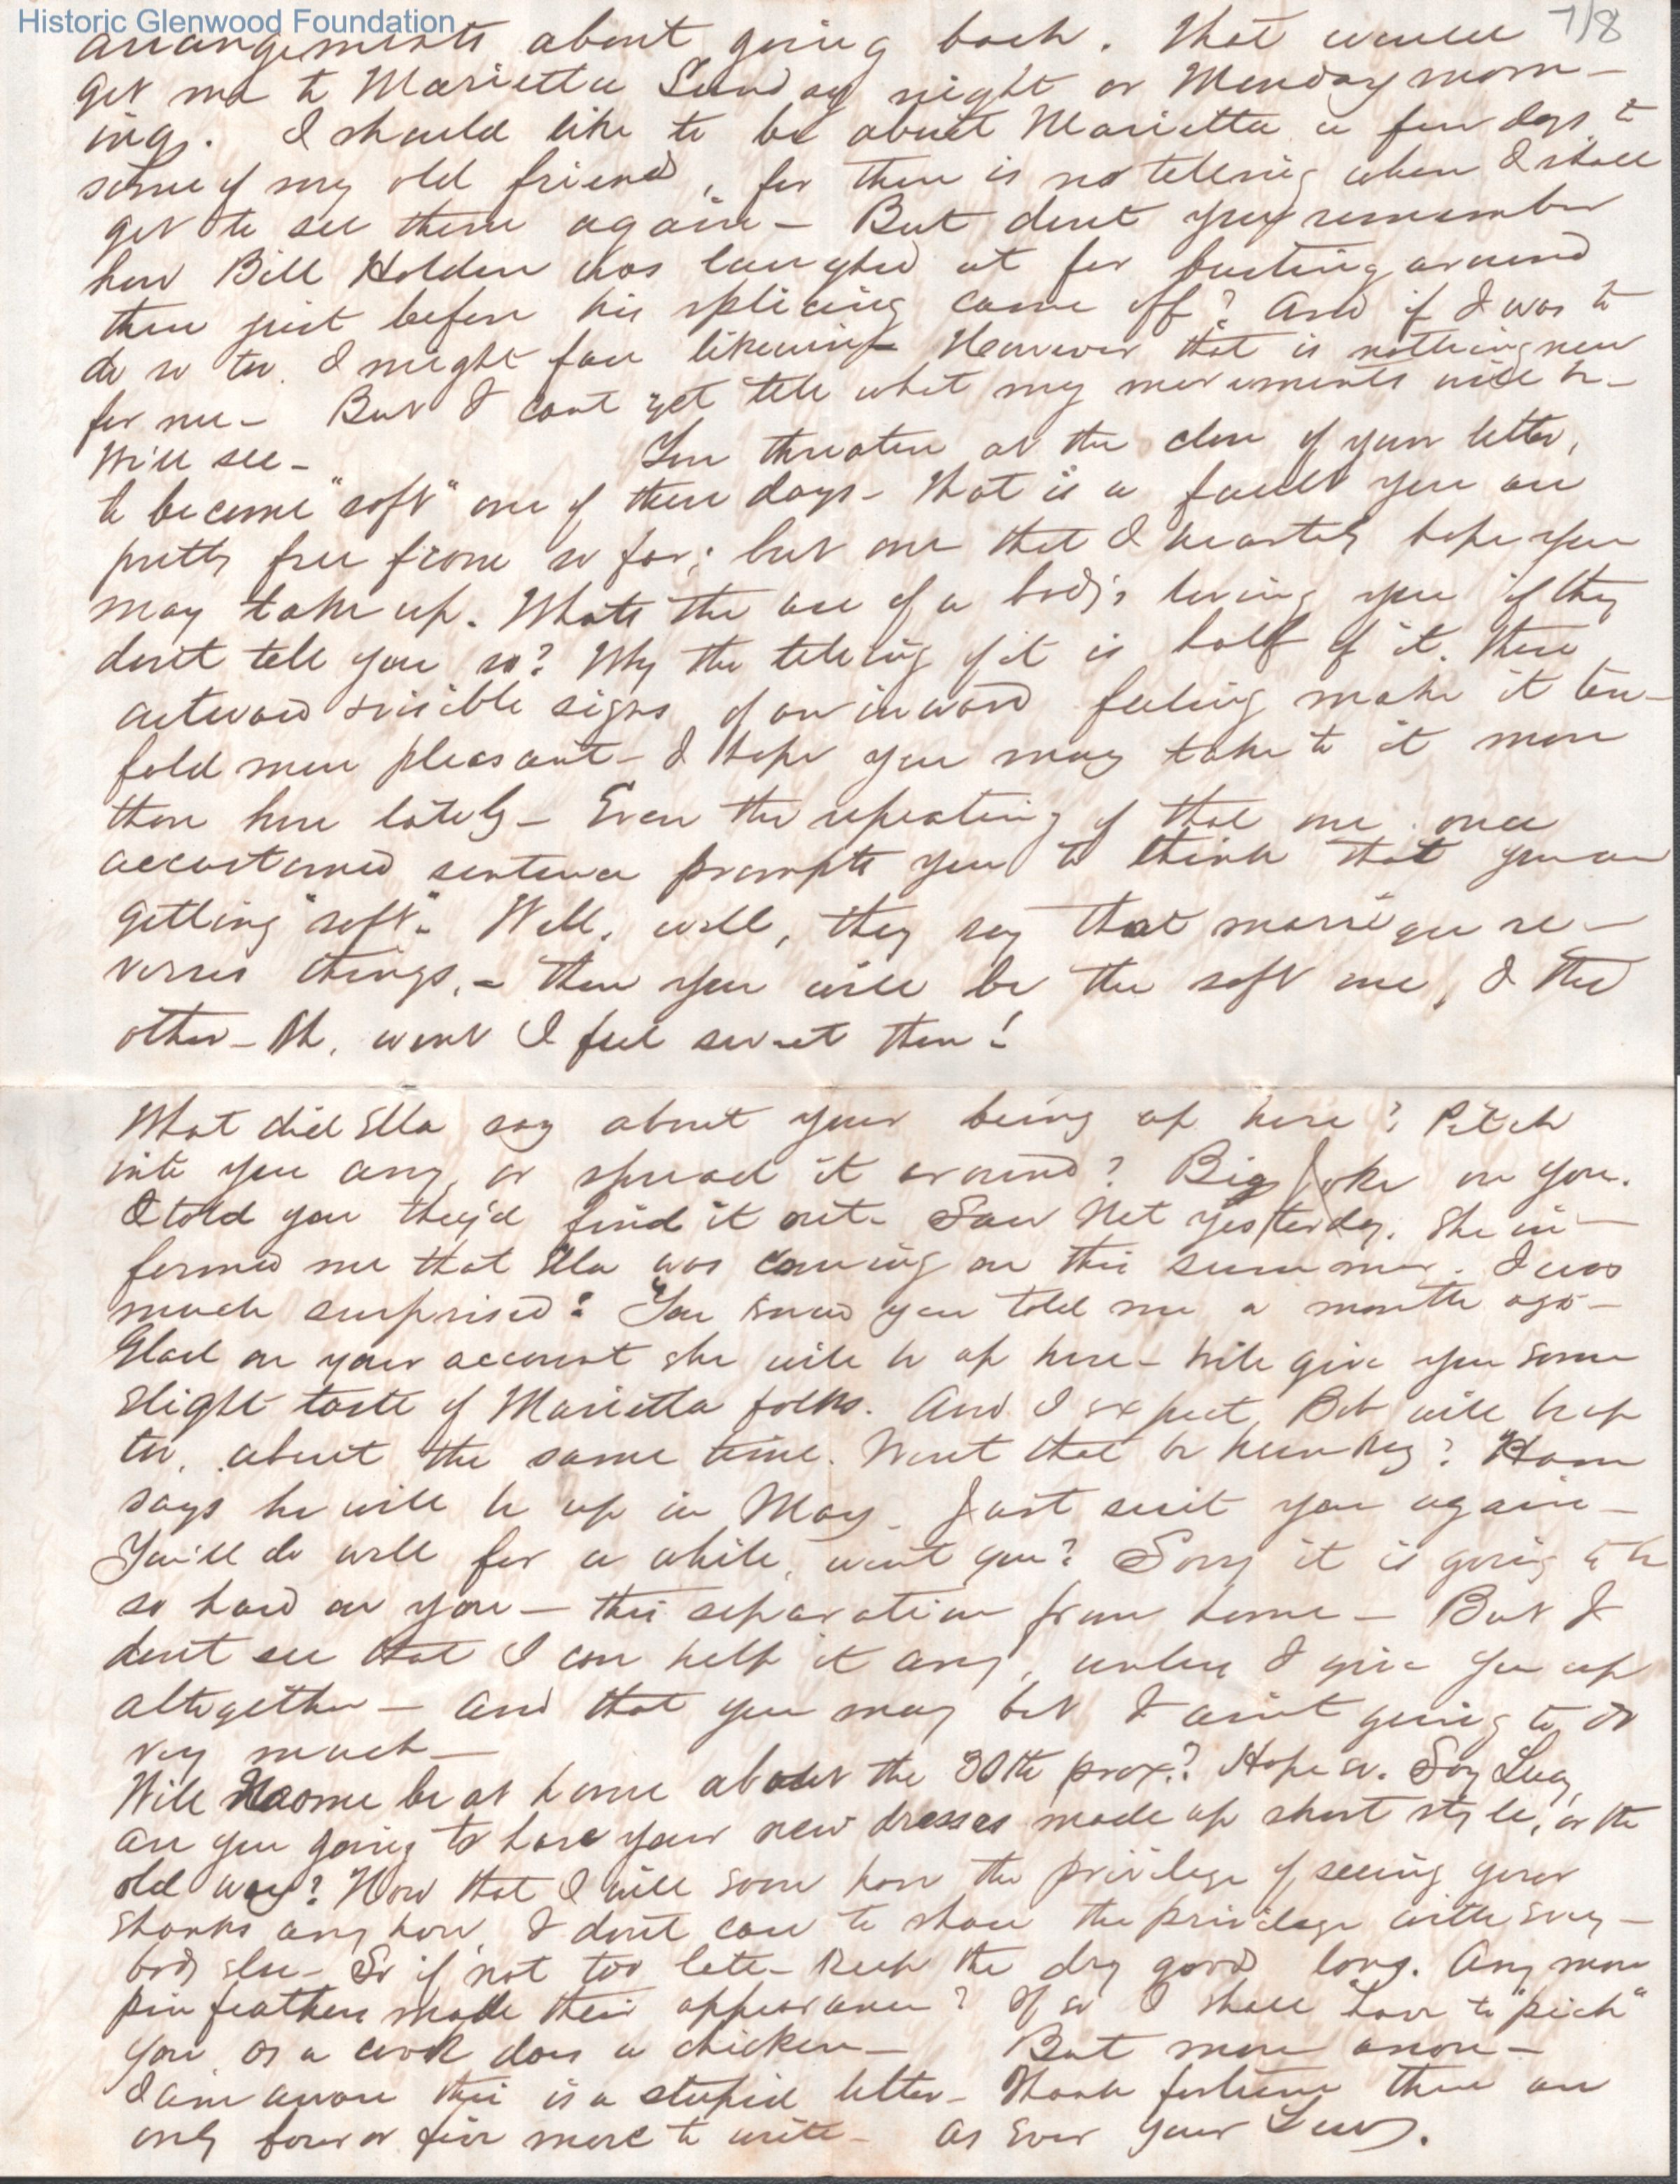 Historic Glenwood Foundation
7/8
arrangements about going back. That would
get me to Marietta Sunday night or Monday morn-
ing. I should like to be about Marietta a few days to
some of my old friends, for there is no telling when I shall
get to see them again - But dont you remember
how Bill Holden was laughed at for busting around
there just before his splicing came off? And if I was to
do so too. I might fare likewise - However that is nothing new
for me - But I cant yet tell what my movements will be -
We'll see - You threaten at the close of your letter,
to become "soft" one of these days - That is a fault you are
pretty free from so far; but one that I heartily hope you
may take up. Whats the use of a body's loving you if they
don't tell you so? Why the telling of it is half of it. These
outward visible signs of an inward feeling make it ten-
fold more pleasant - I hope you may take to it more
than here lately - Even the repeating of that one once
accustomed sentence prompts you to think that you are
getting "soft". Well, well, they say that marriage re-
verses things, - then you will be the soft one, I the
other - Oh, wont I feel sweet then!
What did Ella say about your being up here? Pitch
into you any, or spread it around? Big Joke on you.
I told you they'd find it out - Saw Net yesterday. She in-
formed me that Ella was coming on this summer. I was
much surprised: You know you told me a month ago -
Glad on your account she will be up here - Will give you some
slight taste of Marietta folks. And I expect Bob will be up
too, about the same time. Wont that be hunkey? Ham
says he will be up in May - Just suit you again -
You'll do well for a while, wont you? Sorry it is going to be
so hard on you - this separation from home - But I
dont see that I can help it any, unless I give you up
altogether - and that you may bet I aint going to do
very much -
Will Naome be at home about the 30th prox.? Hope so. Say Lucy,
are you going to have your new dresses made up short style, or the
old way? Now that I will soon have the privilege of seeing your
shanks anyhow, I dont care to share the privilege with every-
body else - So if not too late - keep the dry goods long. Any more
pin feathers made their appearance? If so I shall have to "pick"
you, as a cook does a chicken - But more anon -
I am aware this is a stupid letter - Thank fortune there are
only four or five more to write - As ever your